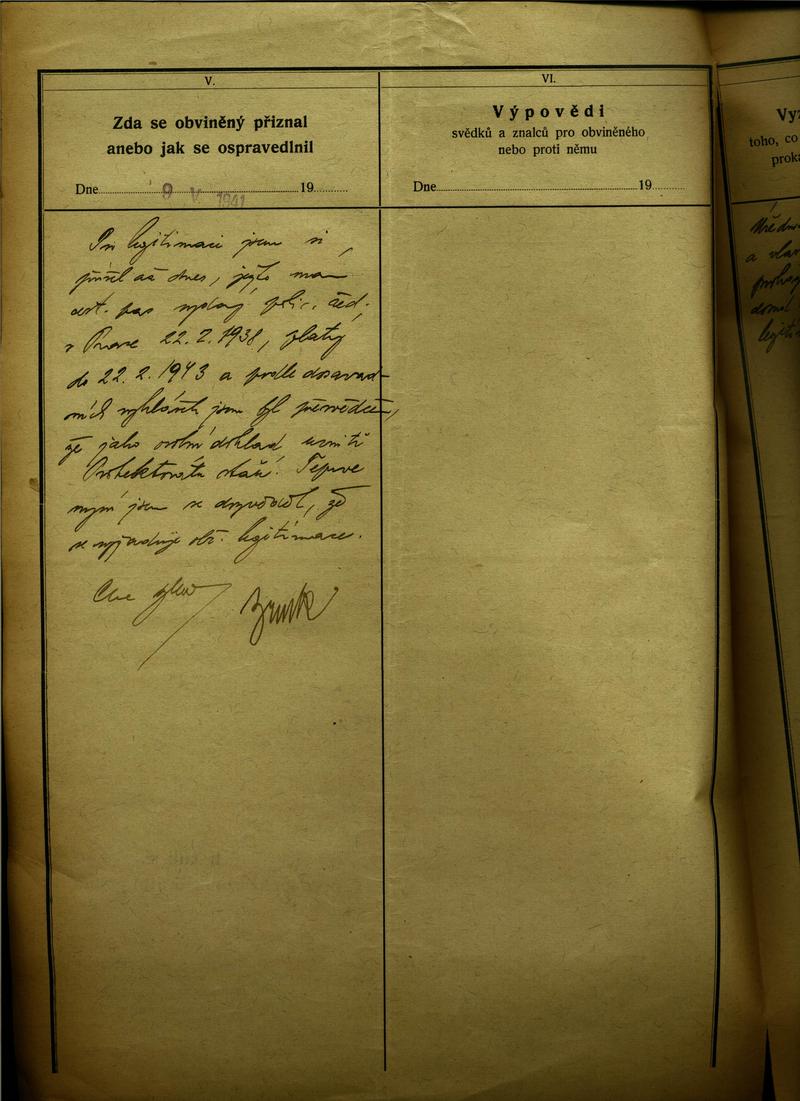 V.
Zda se obviněný přiznal
anebo jak se ospravedlnil
Dne 9 V 1941 19
legitimaci jsem si
přišel až dnes, ježto mám
cest. pas vydaný polic. řed.
v Praze 22.2.1938, platný
do 22.2.1943 a podle dosavad-
ních vyhlášek jsem byl přesvědčen,
že jako osobní doklad uvnitř
Protektorátu stačí. Teprve
nyní jsem se dozvěděl, že
se vyžaduje obč. legitimace.
VI.
Výpovědi
svědků a znalců pro obviněného
nebo proti němu
Dne 19
toho, co
a